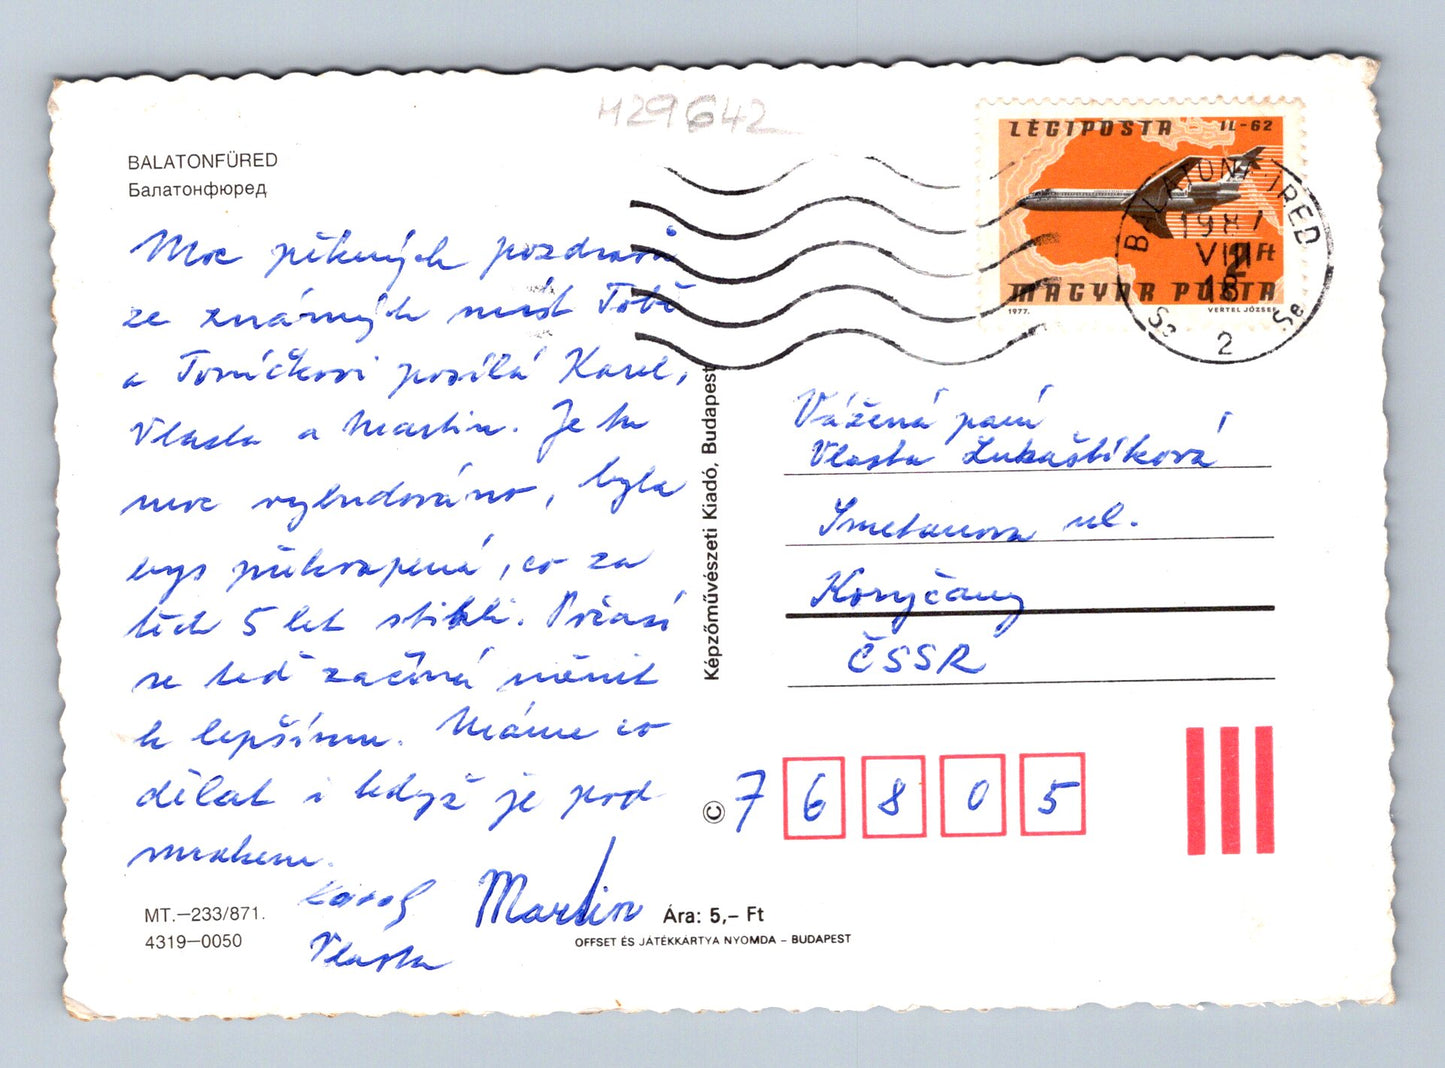 H29642
BALATONFÜRED
Балатонфюред
Moc pěkných pozdravů
ze známých míst Tobě
a Toníčkovi posílá Karel,
Vlasta a Martin. Je tu
moc vybudováno, byla
bys překvapená, co za
těch 5 let stihli. Počasí
se teď začíná měnit
k lepšímu. Máme co
dělat i když je pod
mrakem.
Karel
Martin
Vlasta
MT.–233/871.
4319–0050
Ára: 5,– Ft
OFFSET ÉS JÁTÉKKÁRTYA NYOMDA – BUDAPEST
Képzőművészeti Kiadó, Budapest
©
LÉGIPOSTA – IL-62
2 Ft
MAGYAR POSTA
1977. VERTEL JÓZSEF
BALATONFÜRED
1987
VIII
18
2
Vážená paní
Vlasta Lukaštíková
Smetanova ul.
Koryčany
ČSSR
7 6 8 0 5